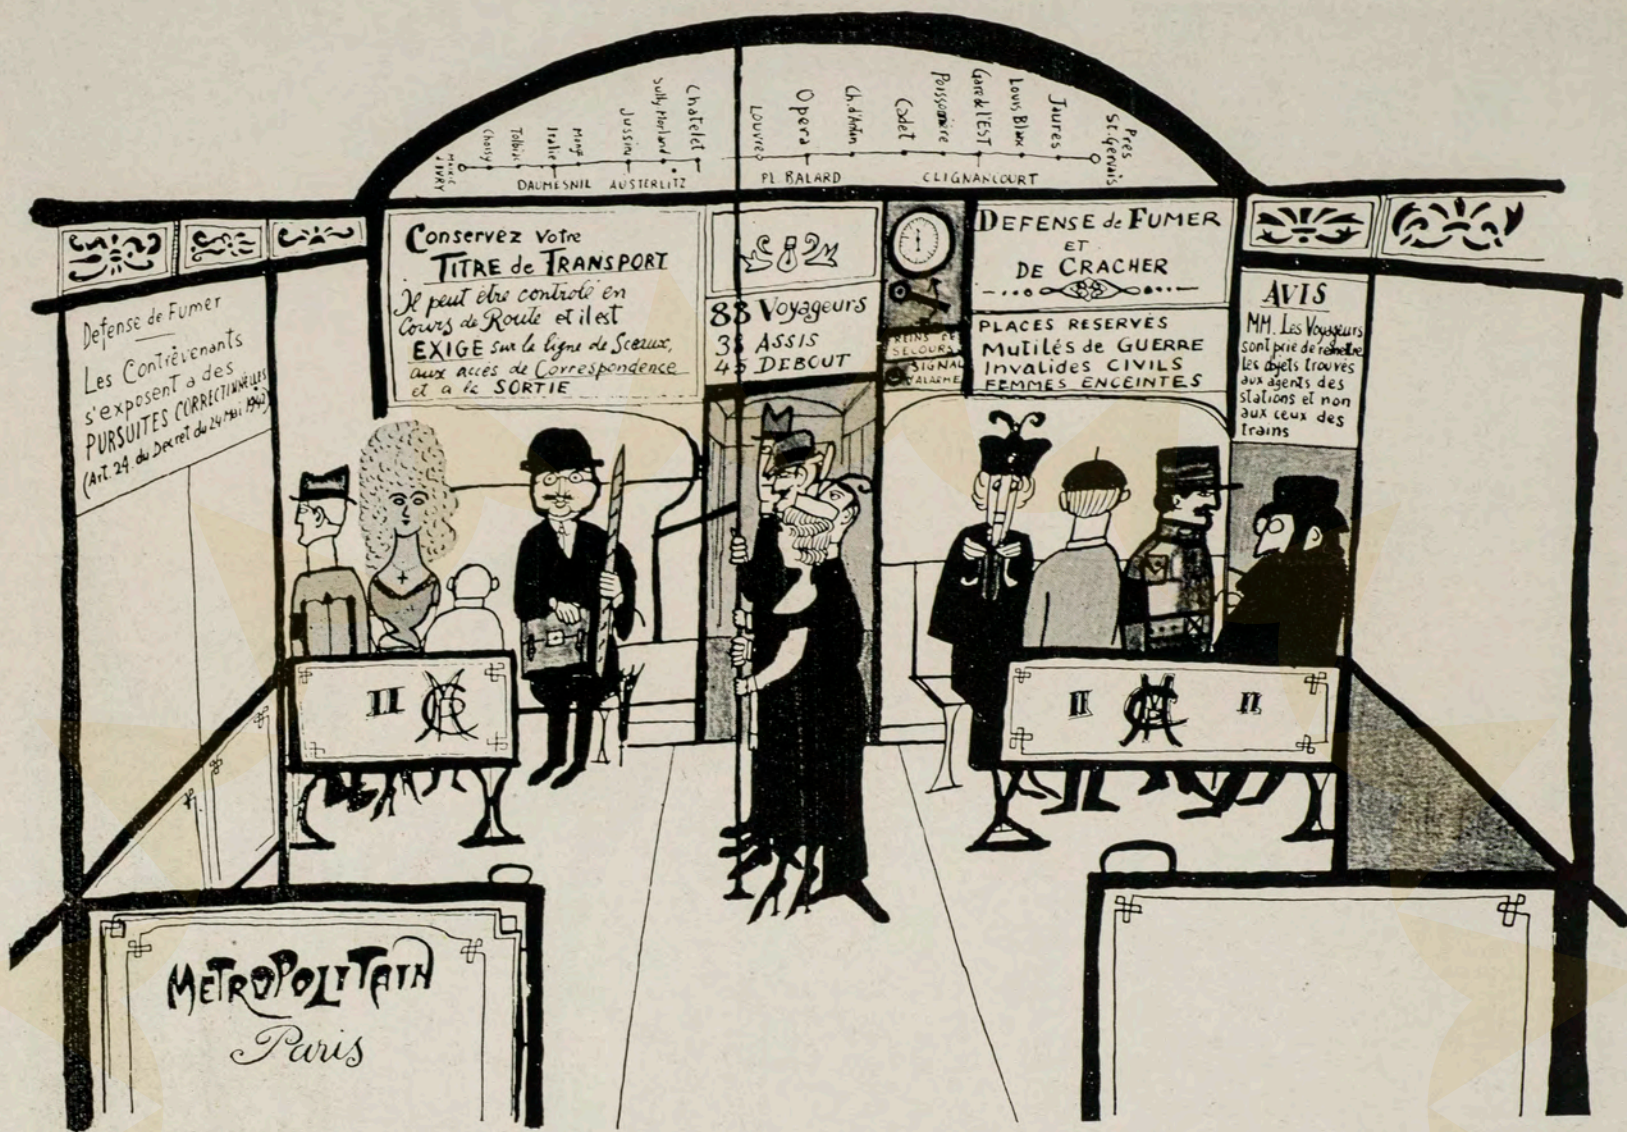 MAIRIE
d'IVRY
Choisy
Tolbiac
Italie
Monge
Jussieu
Sully Morland
Chatelet
Louvre
Opera
Ch. d'Antin
Cadet
Poissonière
Gare de l'EST
Louis Blanc
Jaures
Pres
St. Gervais
DAUMESNIL AUSTERLITZ PL BALARD CLIGNANCOURT
Defense de Fumer
Les Contrevenants
s'exposent a des
PURSUITES CORRECTIONNELLES
(Art. 24. du Decret du 24 Mai 1942)
Conservez Votre
TITRE de TRANSPORT
Il peut être controlé en
Cours de Route et il est
EXIGE sur la ligne de Sceaux,
aux accès de Correspondence
et a la SORTIE
88 Voyageurs
ASSIS
DEBOUT
FREINS DE
SECOURS
SIGNAL
D'ALARME
DEFENSE de FUMER
ET
DE CRACHER
PLACES RESERVES
MUTILÉS de GUERRE
Invalides CIVILS
FEMMES ENCEINTES
AVIS
MM. Les Voyageurs
sont prié de remettre
les objets trouvés
aux agents des
stations et non
aux ceux des
trains
II
II II
METROPOLITAIN
Paris